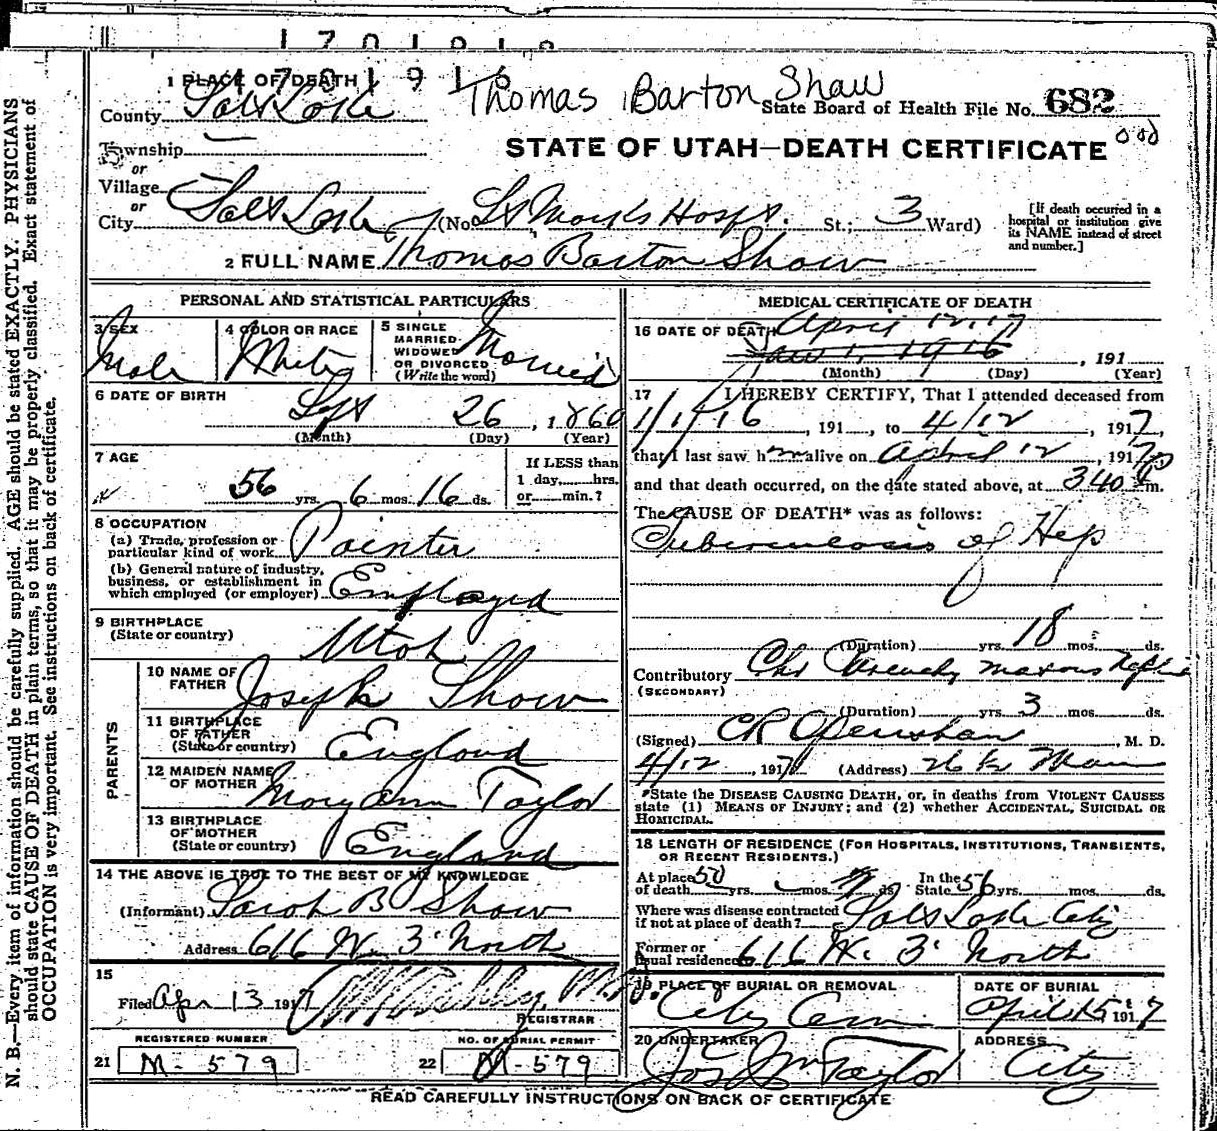 1701916
1 PLACE OF DEATH
Thomas Barton Shaw
County Salt Lake
State Board of Health File No. 682
Township
STATE OF UTAH—DEATH CERTIFICATE
or
Village
or
City Salt Lake (No. St Marks Hosp. St.; 3 Ward)
[If death occurred in a hospital or institution give its NAME instead of street and number.]
2 FULL NAME Thomas Barton Shaw
PERSONAL AND STATISTICAL PARTICULARS
3 SEX Male
4 COLOR OR RACE White
5 SINGLE MARRIED WIDOWED OR DIVORCED (Write the word) Married
6 DATE OF BIRTH
Sept 26, 1860
(Month) (Day) (Year)
7 AGE
56 yrs. 6 mos. 16 ds.
If LESS than 1 day, hrs. or min.?
8 OCCUPATION
(a) Trade, profession or particular kind of work Painter
(b) General nature of industry, business, or establishment in which employed (or employer) Employed
9 BIRTHPLACE
(State or country) Utah
PARENTS
10 NAME OF FATHER Joseph Shaw
11 BIRTHPLACE OF FATHER (State or country) England
12 MAIDEN NAME OF MOTHER Mary Ann Taylor
13 BIRTHPLACE OF MOTHER (State or country) England
14 THE ABOVE IS TRUE TO THE BEST OF MY KNOWLEDGE
(Informant) Sarah B Shaw
Address 616 W. 3' North
15
Filed Apr 13 1917
REGISTRAR
REGISTERED NUMBER
21 M-579
NO. OF BURIAL PERMIT
22 M-579
MEDICAL CERTIFICATE OF DEATH
16 DATE OF DEATH April 12, 17
Jan 1, 1916, 191
(Month) (Day) (Year)
17 I HEREBY CERTIFY, That I attended deceased from
1/1/16, 191, to 4/12, 1917,
that I last saw him alive on April 12, 1917,
and that death occurred, on the date stated above, at 340 P m.
The CAUSE OF DEATH* was as follows:
Tuberculosis of Hip
(Duration) yrs. 18 mos. ds.
Contributory Chr
(SECONDARY)
(Duration) yrs. 3 mos. ds.
(Signed) C R Openshaw, M. D.
4/12, 1917 (Address) Main
*State the DISEASE CAUSING DEATH, or, in deaths from VIOLENT CAUSES
state (1) MEANS OF INJURY; and (2) whether ACCIDENTAL, SUICIDAL or
HOMICIDAL.
18 LENGTH OF RESIDENCE (FOR HOSPITALS, INSTITUTIONS, TRANSIENTS,
OR RECENT RESIDENTS.)
At place of death 50 yrs. mos. ds. In the State 56 yrs. mos. ds.
Where was disease contracted if not at place of death? Salt Lake City
Former or usual residence 616 W. 3' North
19 PLACE OF BURIAL OR REMOVAL
City Cem
DATE OF BURIAL
April 15 1917
20 UNDERTAKER
Jos Wm Taylor
ADDRESS
City
READ CAREFULLY INSTRUCTIONS ON BACK OF CERTIFICATE
N. B.—Every item of information should be carefully supplied. AGE should be stated EXACTLY. PHYSICIANS
should state CAUSE OF DEATH in plain terms, so that it may be properly classified. Exact statement of
OCCUPATION is very important. See instructions on back of certificate.